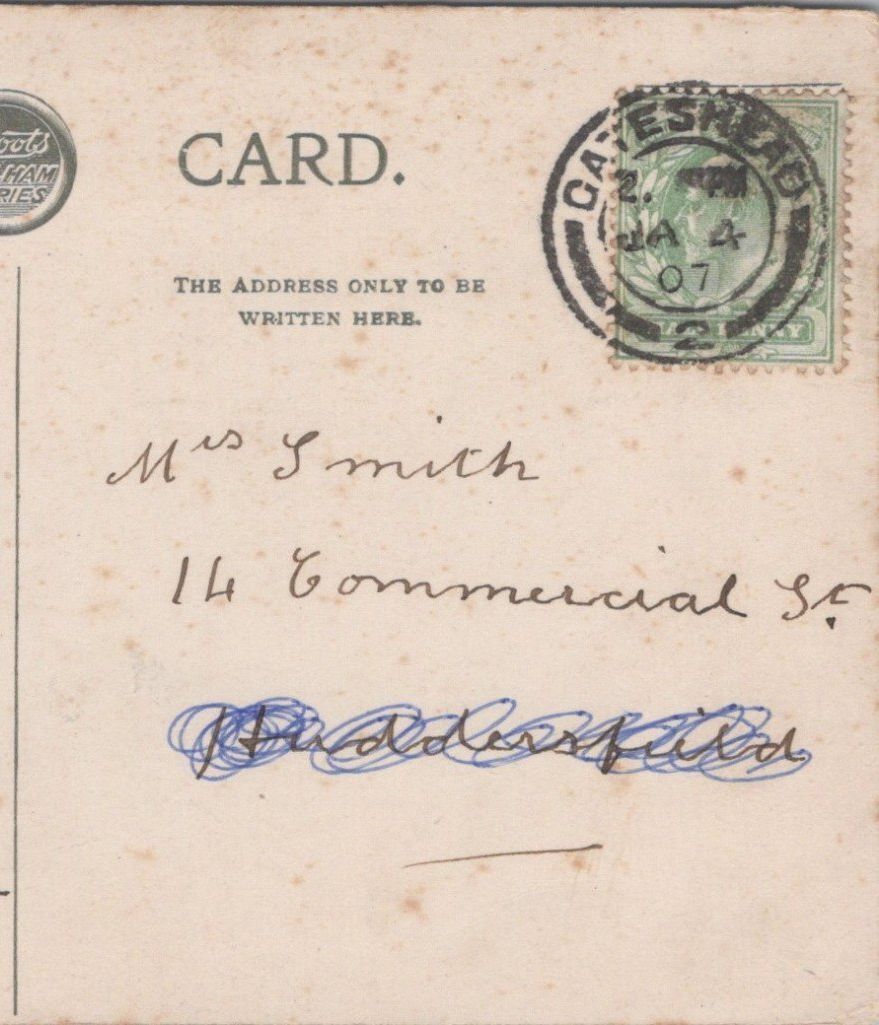 oots
HAM
RIES
CARD.
THE ADDRESS ONLY TO BE
WRITTEN HERE.
GATESHEAD
2. PM
JA 4
07
2
PENNY
Mrs Smith
14 Commercial St.
Huddersfield